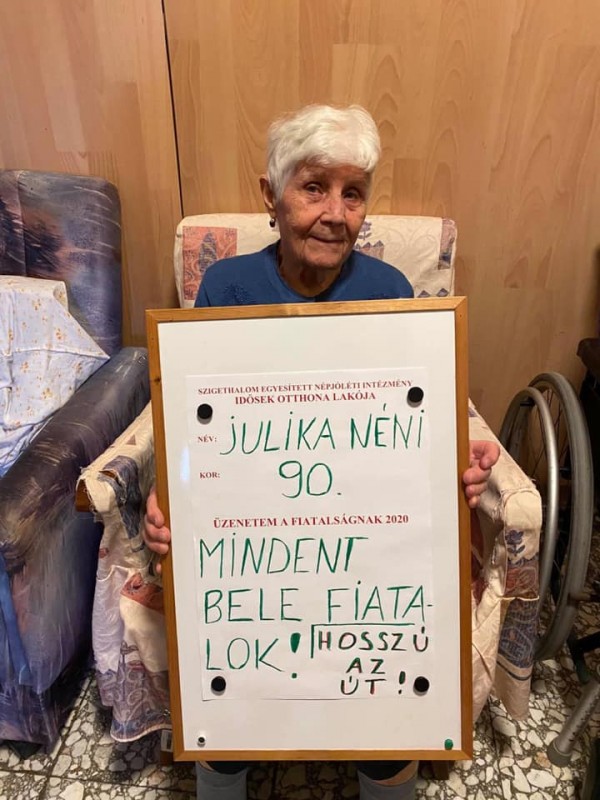 SZIGETHALOM EGYESÍTETT NÉPJÓLÉTI INTÉZMÉNY
IDŐSEK OTTHONA LAKÓJA
NÉV: JULIKA NÉNI
KOR: 90.
ÜZENETEM A FIATALSÁGNAK 2020
MINDENT
BELE FIATA-
LOK! HOSSZÚ
AZ
ÚT!